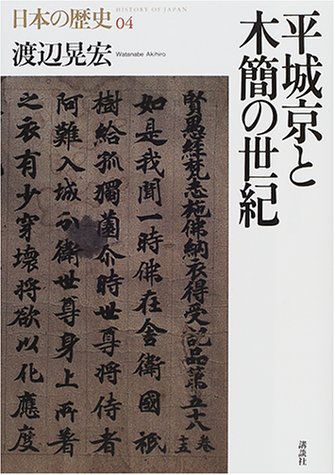 日本の歴史 04
HISTORY OF JAPAN
渡辺晃宏
Watanabe Akihiro
平城京と
木簡の世紀
賢愚經梵志施佛納衣得受記品第五十八 卷
如是我聞一時佛在舍衛國祇
樹給孤獨園尒時世尊
阿難入城分衛世尊身上
之衣有少穿壞將欲以化應度
講談社